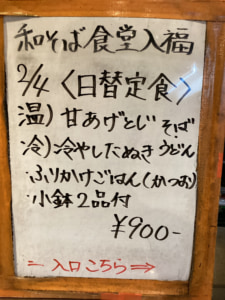 和そば食堂入福
2/4〈日替定食〉
温)甘あげとじそば
冷)冷やしたぬきうどん
・ふりかけごはん(かつお)
・小鉢2品付
¥900-
入口こちら⇒